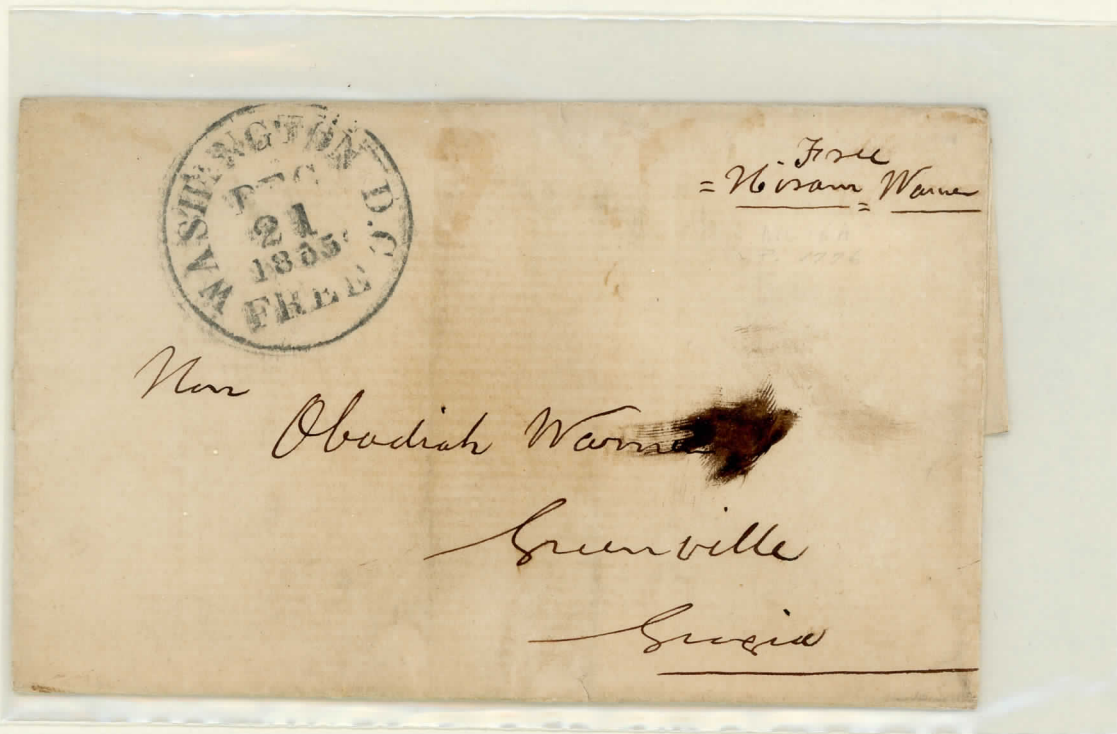 WASHINGTON D.C.
DEC
21
1855
FREE
Free
= Hiram = Warner
Hon
Obadiah Warner
Greenville
Georgia